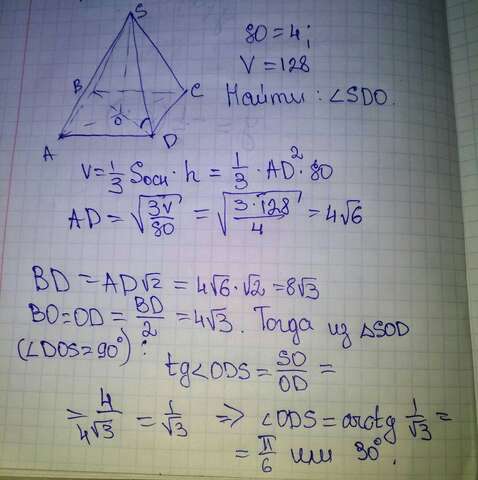 S
SO=4;
V=128
Найти: ∠SDO.
B
C
O
A
D
V=1/3 Sосн·h = 1/3·AD²·SO
AD = √(3V/SO) = √(3·128/4) = 4√6
BD = AD√2 = 4√6·√2 = 8√3
BO=OD = BD/2 = 4√3. Тогда из △SOD
(∠DOS=90°):
tg∠ODS = SO/OD =
= 4/4√3 = 1/√3 ⇒ ∠ODS = arctg 1/√3 =
= π/6 или 30°.